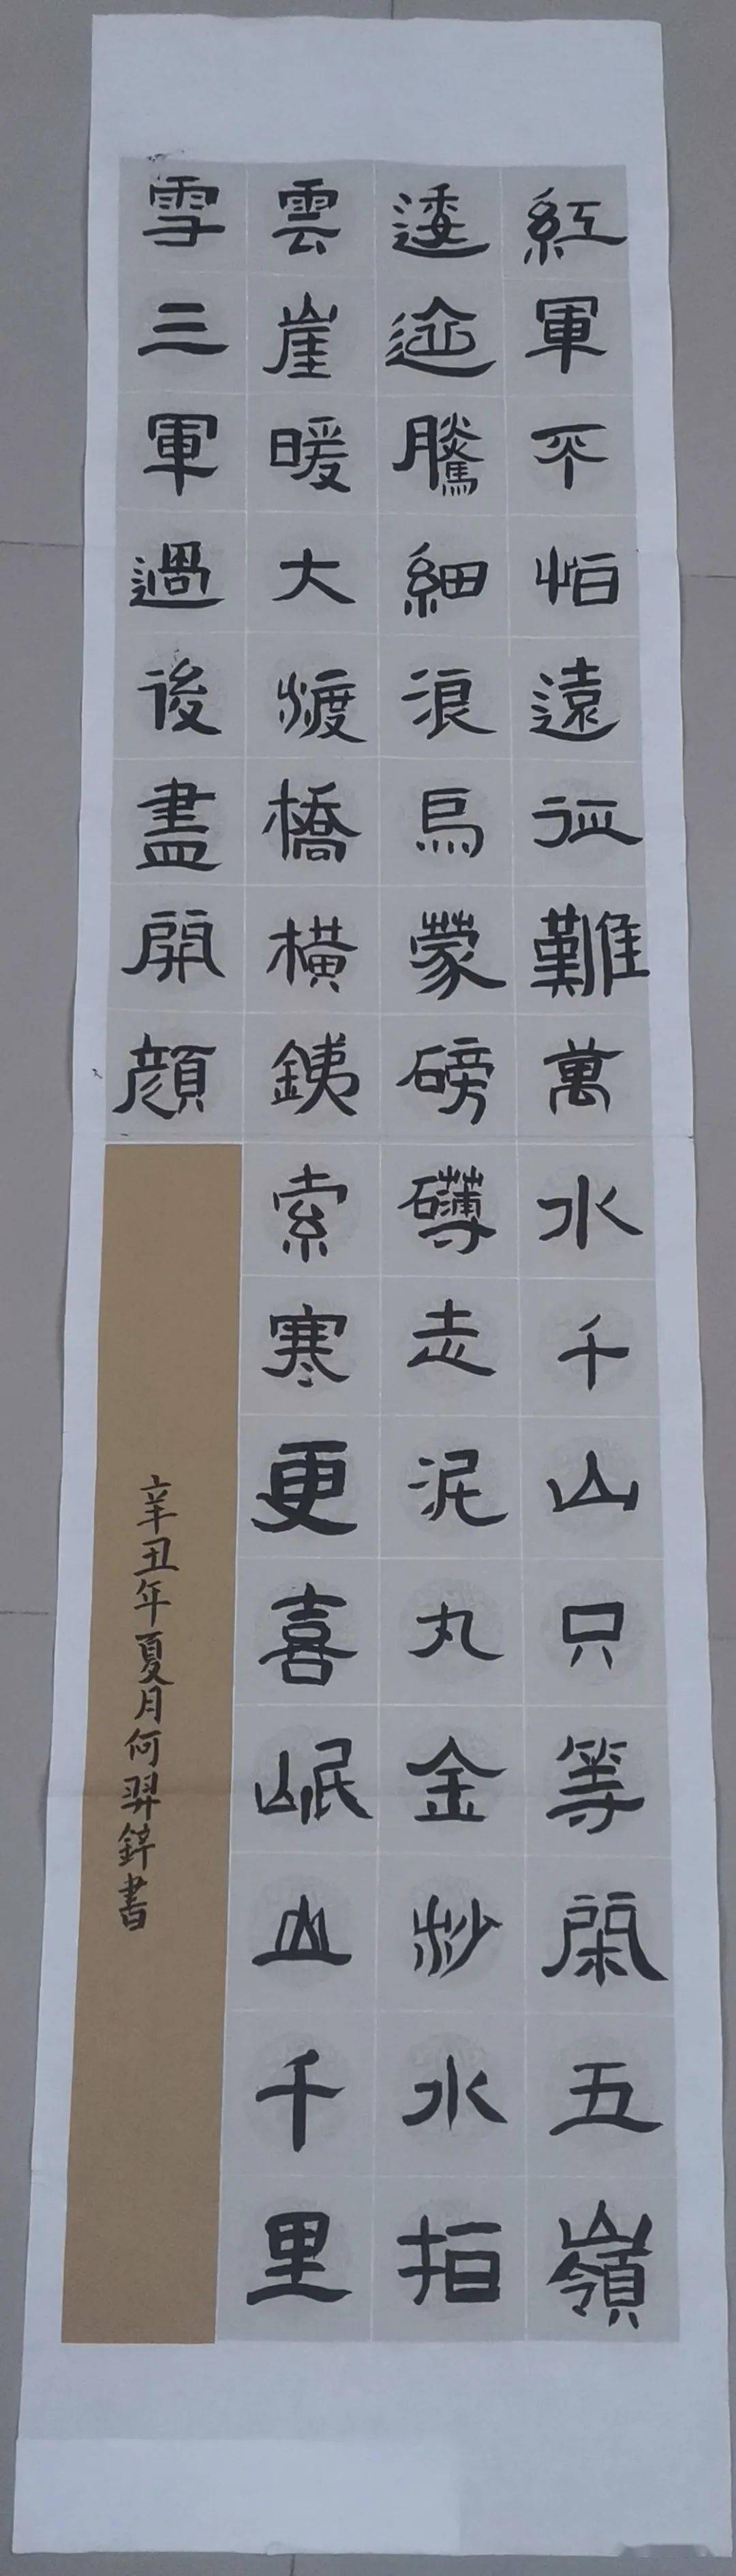 紅軍不怕遠征難萬水千山只等閑五嶺
逶迤騰細浪烏蒙磅礴走泥丸金沙水拍
雲崖暖大渡橋橫鐵索寒更喜岷山千里
雪三軍過後盡開顔
辛丑年夏月何羿錚書